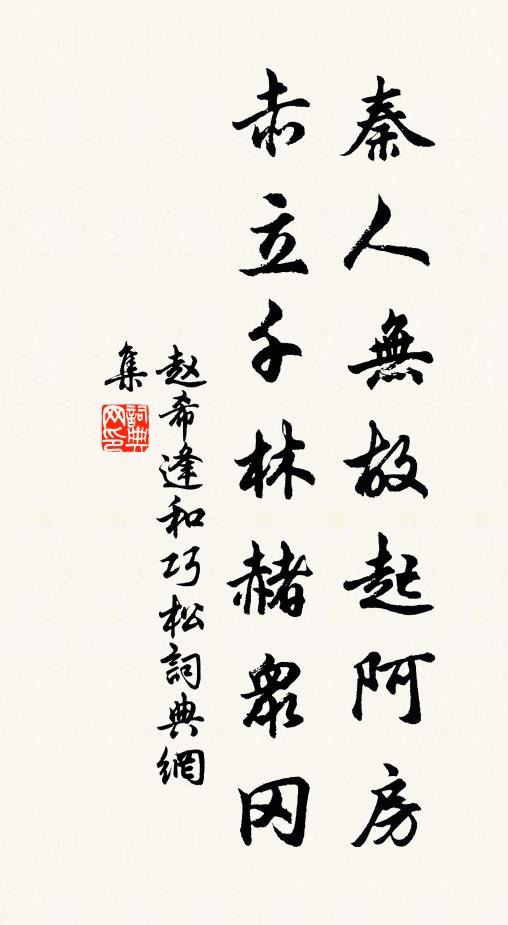 秦人無故起阿房
赤立千林赭衆冈
赵希逢和巧松詞典網
集
詞典
网印